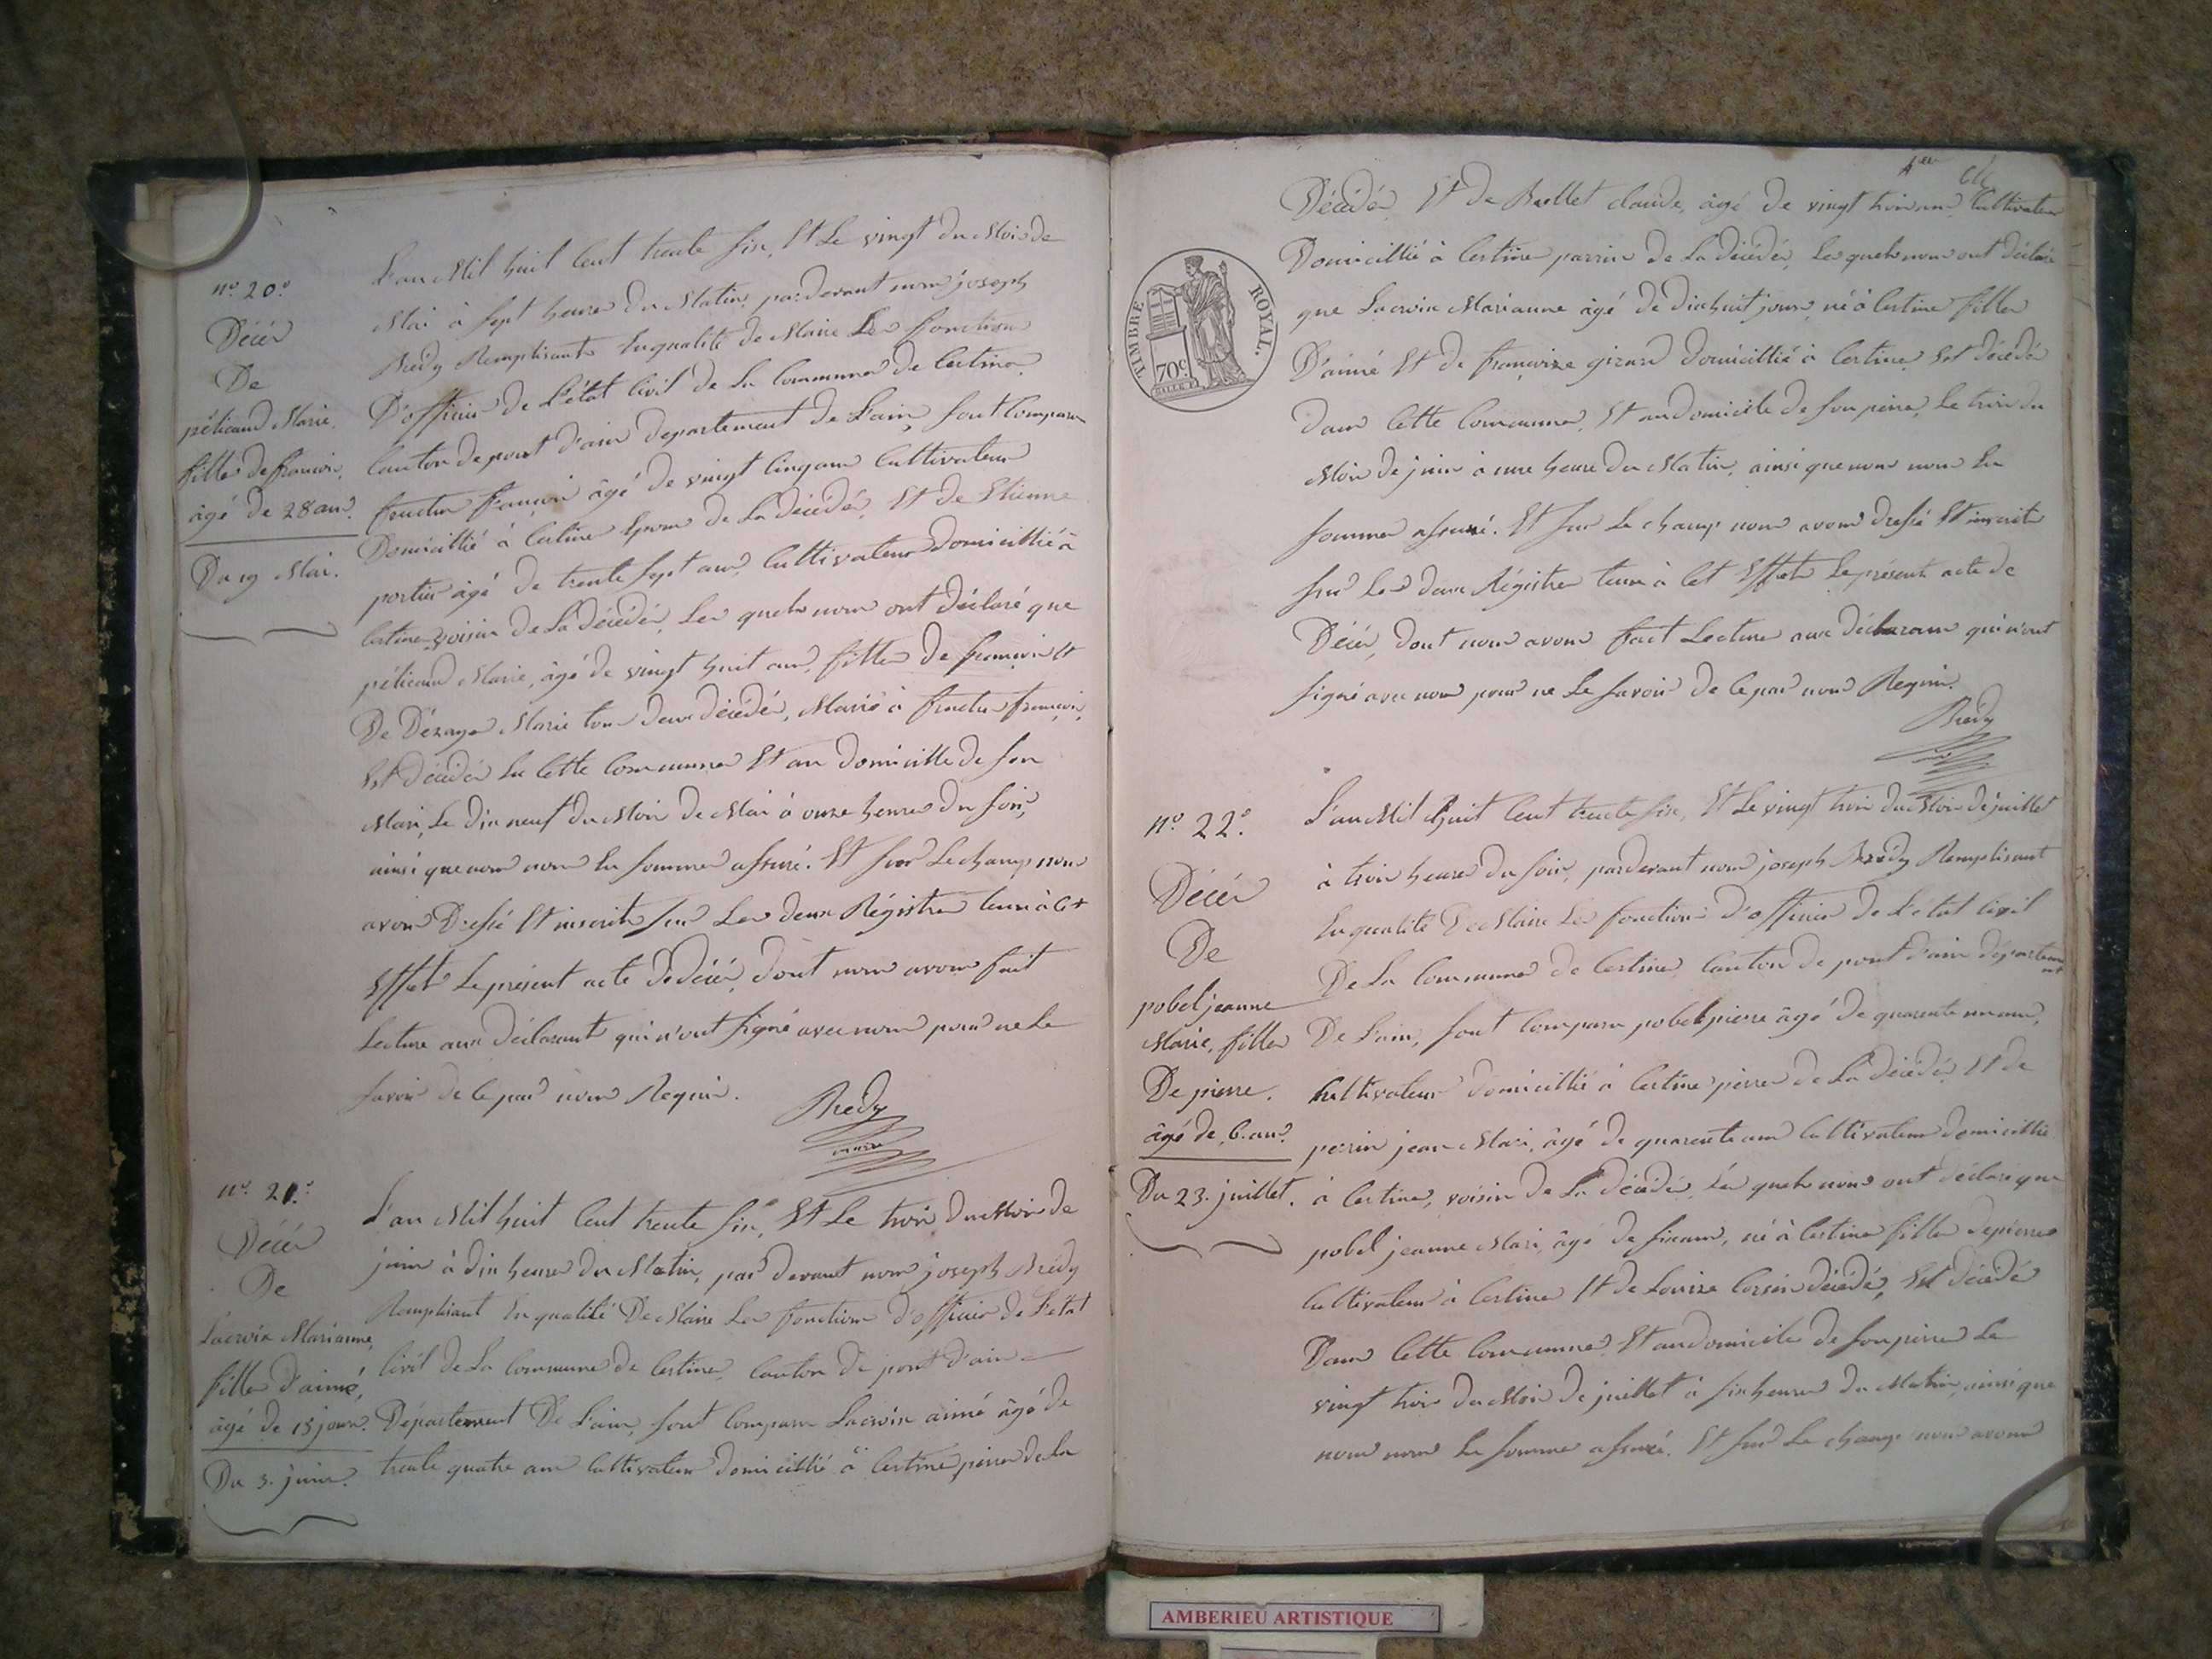 nº 20.º
Décés
De
péliand Marie,
fille de françois,
âgé de 28 ans.
Du 19 Mai.
L'an Mil huit Cent trente six, Et Le vingt du Mois de
Mai à sept heures du Matin, pardevant nous joseph
Bredy Remplisants En qualité de Maire Les fonctions
D'officier de L'état Civil de La Commune de Certines
Canton de pont d'ain département de L'ain, sont Comparu
françois âgé de vingt Cinq ans Cultivateur
Domicillié à Certines Epoux de La décédée, Et de Etienne
portier âgé de trente sept ans, Cultivateur domicillié à
Certines voisin de La décédée, Les quels nous ont déclaré que
péliand Marie, âgé de vingt huit ans, fille de françois Et
De Marie tous deux décédés, Marié à françois,
Est décédée En Cette Commune Et au domicille de son
Mari, Le dix neuf du Mois de Mai à onze heures du soir,
ainsi que nous nous En sommes assuré. Et sur Le champ nous
avons Dressé Et inscrits sur Les deux Régistres tenu à Cet
Effet Le présent acte De décés, dont nous avons fait
Lecture aux déclarant qui n'ont signé avec nous pour ne Le
savoir de Ce par nous Requis.
Bredy
maire
nº 21.º
Décés
De
Lacroix Marianne,
fille d'aimé,
âgé de 18 jours.
Du 3. juin.
L'an Mil huit Cent trente six, Et Le trois du Mois de
juin à dix heures du Matin, par devant nous joseph Brédy
Remplisant En qualité De Maire Les fonctions d'officier de L'état
Civil de La Commune de Certines, Canton de pont d'ain
Département De L'ain, sont Comparu Lacroix aimé âgé de
trente quatre ans Cultivateur domicillié à Certines, perre de La
Décédée, Et de Claude, âgé de vingt trois ans, Cultivateur
Domicillié à Certines parrin de La décédée, Les quels nous ont déclaré
que Lacroix Marianne âgé de dix huit jours, né à Certines fille
D'aimé Et de françoize girard domicillié à Certines, Est décédée
dans Cette Commune, Et au domicile de son perre, Le trois du
Mois de juin à une heure du Matin, ainsi que nous nous En
sommes assuré. Et sur Le champ nous avons dressé Et inscrits
sur Les deux Régistres tenu à Cet Effets Le présents acte de
Décés, dont nous avons fait Lecture aux déclarans qui n'ont
signé avec nous pour ne Le savoir de Ce par nous Requis.
Bredy
TIMBRE ROYAL.
70c
nº 22.º
Décés
De
pobel jeanne
Marie, fille
De pierre.
âgé de 6. ans.
Du 23. juillet.
L'an Mil Huit Cent trente six, Et Le vingt trois du Mois de juillet
à trois heures du soir, pardevant nous joseph Brédy Remplisant
En qualité De Maire Les fonctions d'officier de L'état Civil
De La Commune de Certines, Canton de pont d'ain département
De L'ain, sont Comparu pobel pierre âgé de quarente un ans,
Cultivateur domicillié à Certines perre de La décédée Et de
perrin jean Mari, âgé de quarente ans Cultivateur domicillié
à Certines, voisin de La décédée, Les quels nous ont déclaré que
pobel jeanne Mari, âgé de six ans, né à Certines fille de pierre
Cultivateur à Certines Et de Louize décédée, Est décédée
Dans Cette Commune Et au domicile de son perre Le
vingt trois du Mois de juillet à six heures du Matin, ainsi que
nous nous En sommes assuré. Et sur Le champ nous avons
AMBERIEU ARTISTIQUE